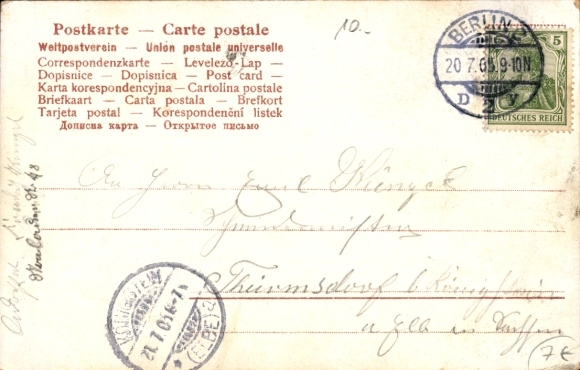 Postkarte — Carte postale
Weltpostverein — Union postale universelle
Correspondenzkarte — Levelező-Lap —
Dopisnice — Dopisnica — Post card —
Karta korespondencyjna — Cartolina postale
Briefkaart — Carta postala — Brefkort
Tarjeta postal — Korespondenční lístek
Дописна карта — Открытое письмо
10.-
BERLIN
20 7.05. 9-10N
5
DEUTSCHES REICH
An Herrn Emil
Thürmsdorf b. Königstein
a. Elb in Sachsen
KÖNIGSTEIN
21.7.05.
(ELBE)
7€